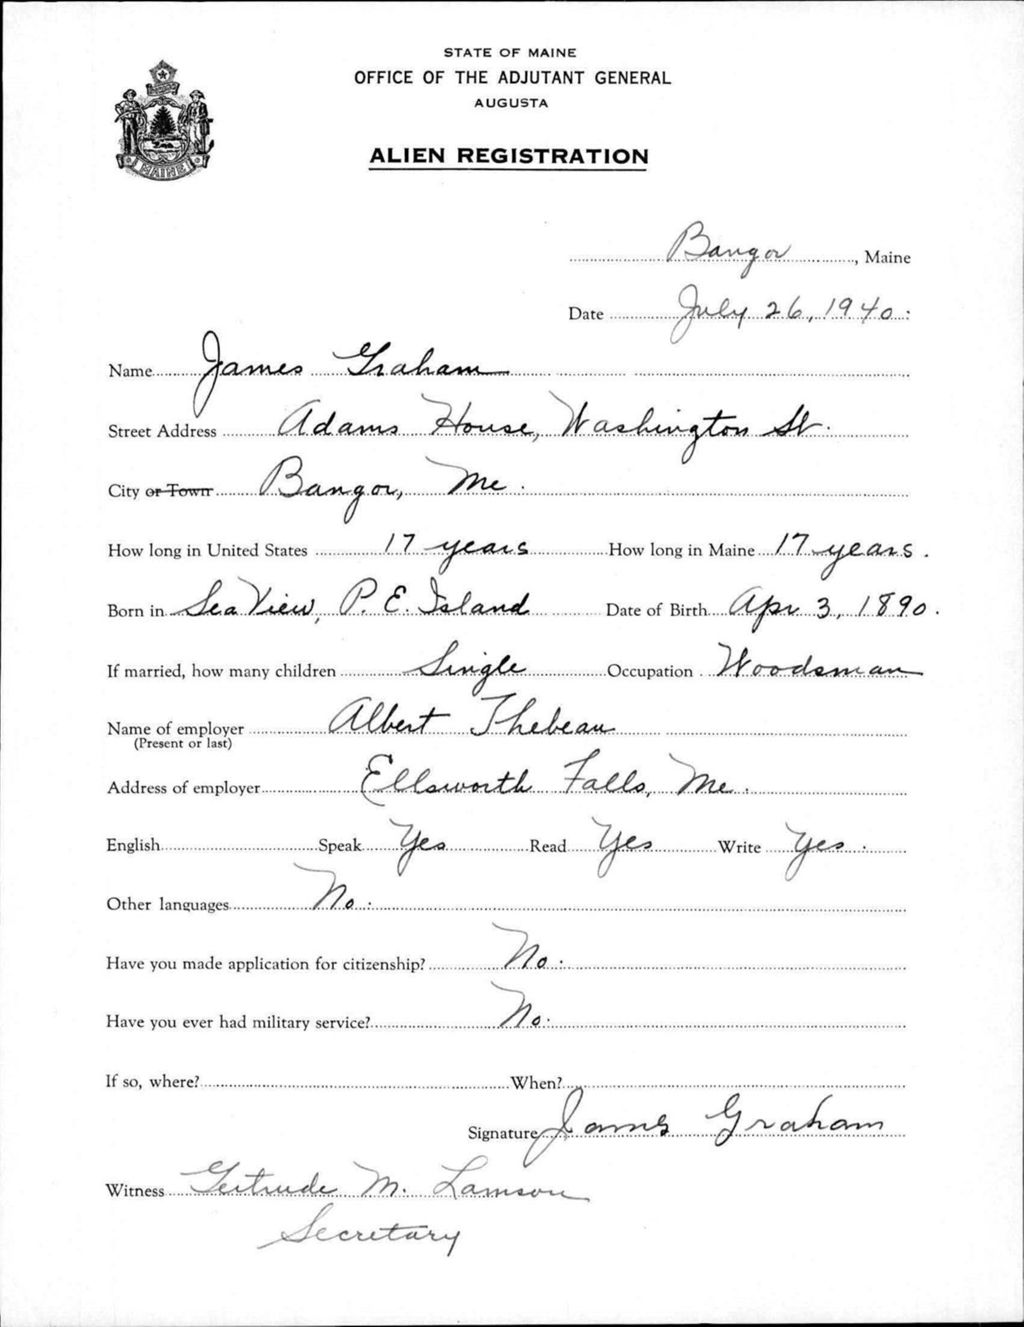 STATE OF MAINE
OFFICE OF THE ADJUTANT GENERAL
AUGUSTA
ALIEN REGISTRATION
MAINE
Bangor, Maine
Date July 26, 1940.
Name James Graham
Street Address Adams House, Washington St.
City or Town Bangor, Me.
How long in United States 17 years How long in Maine 17 years.
Born in Sea View, P. E. Island Date of Birth Apr 3, 1890.
If married, how many children Single Occupation Woodsman
Name of employer Albert Thebeau
(Present or last)
Address of employer Ellsworth Falls, Me.
English Speak Yes Read Yes Write Yes.
Other languages No.
Have you made application for citizenship? No.
Have you ever had military service? No.
If so, where? When?
Signature James Graham
Witness Gertrude M. Lamson
Secretary